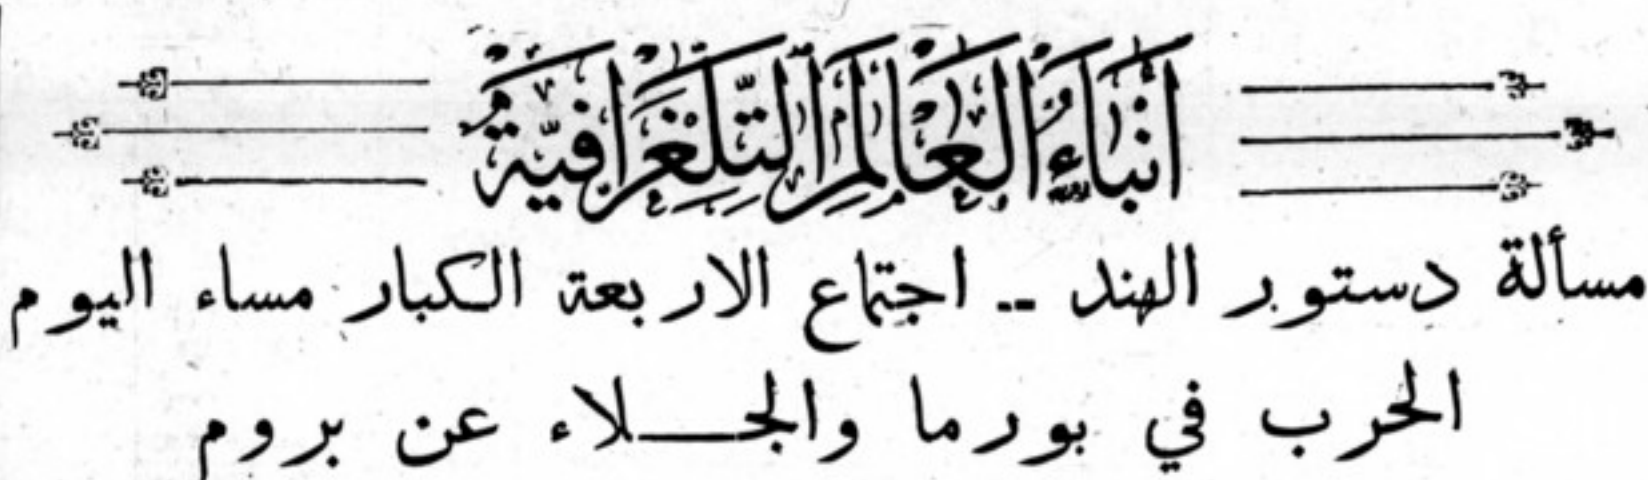 أَنْبَاءُ العَالَمِ التِّلِغْرَافِيَّة
مسألة دستور الهند -- اجتماع الاربعة الكبار مساء اليوم
الحرب في بورما والجـــلاء عن بروم